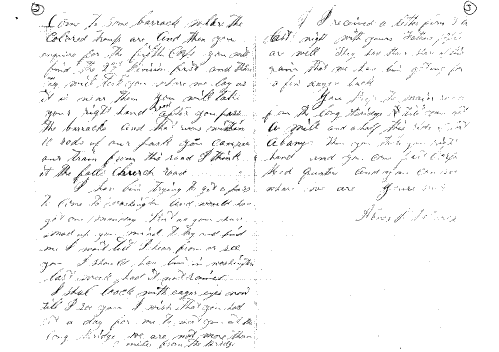 2
Come to some barrack where the
Colored troops are, And then you
enquire for the fifth Corps you will
find the 3rd Division first and then
they will tell you where we lay as
it is near them you will take
your right hand after you pass
the barracks And that runs within
10 rods of our park you can see
our train from this road I think
it the falls Church road
I have bin trying to get a pass
to Come to washington And would have
got one monday But as you have
made up your mind to try and find
me I wait till I hear from or see
you I should have bin in washington
last week had it not rained
I shal look with eager eyes now
till I see you I wish that you had
set a day for me to meet you at the
long Bridge we are not more than
miles from the bridge
3
I received a letter from
last night with yours Father folks
are well They has their share of the
rains that we have bin getting for
a few days back
You keep the main road
from the long Bridge till you get
a mile and a half this side of
then you take your right
hand and you can find Corps
Head Quarter And you can see
where we are Yours